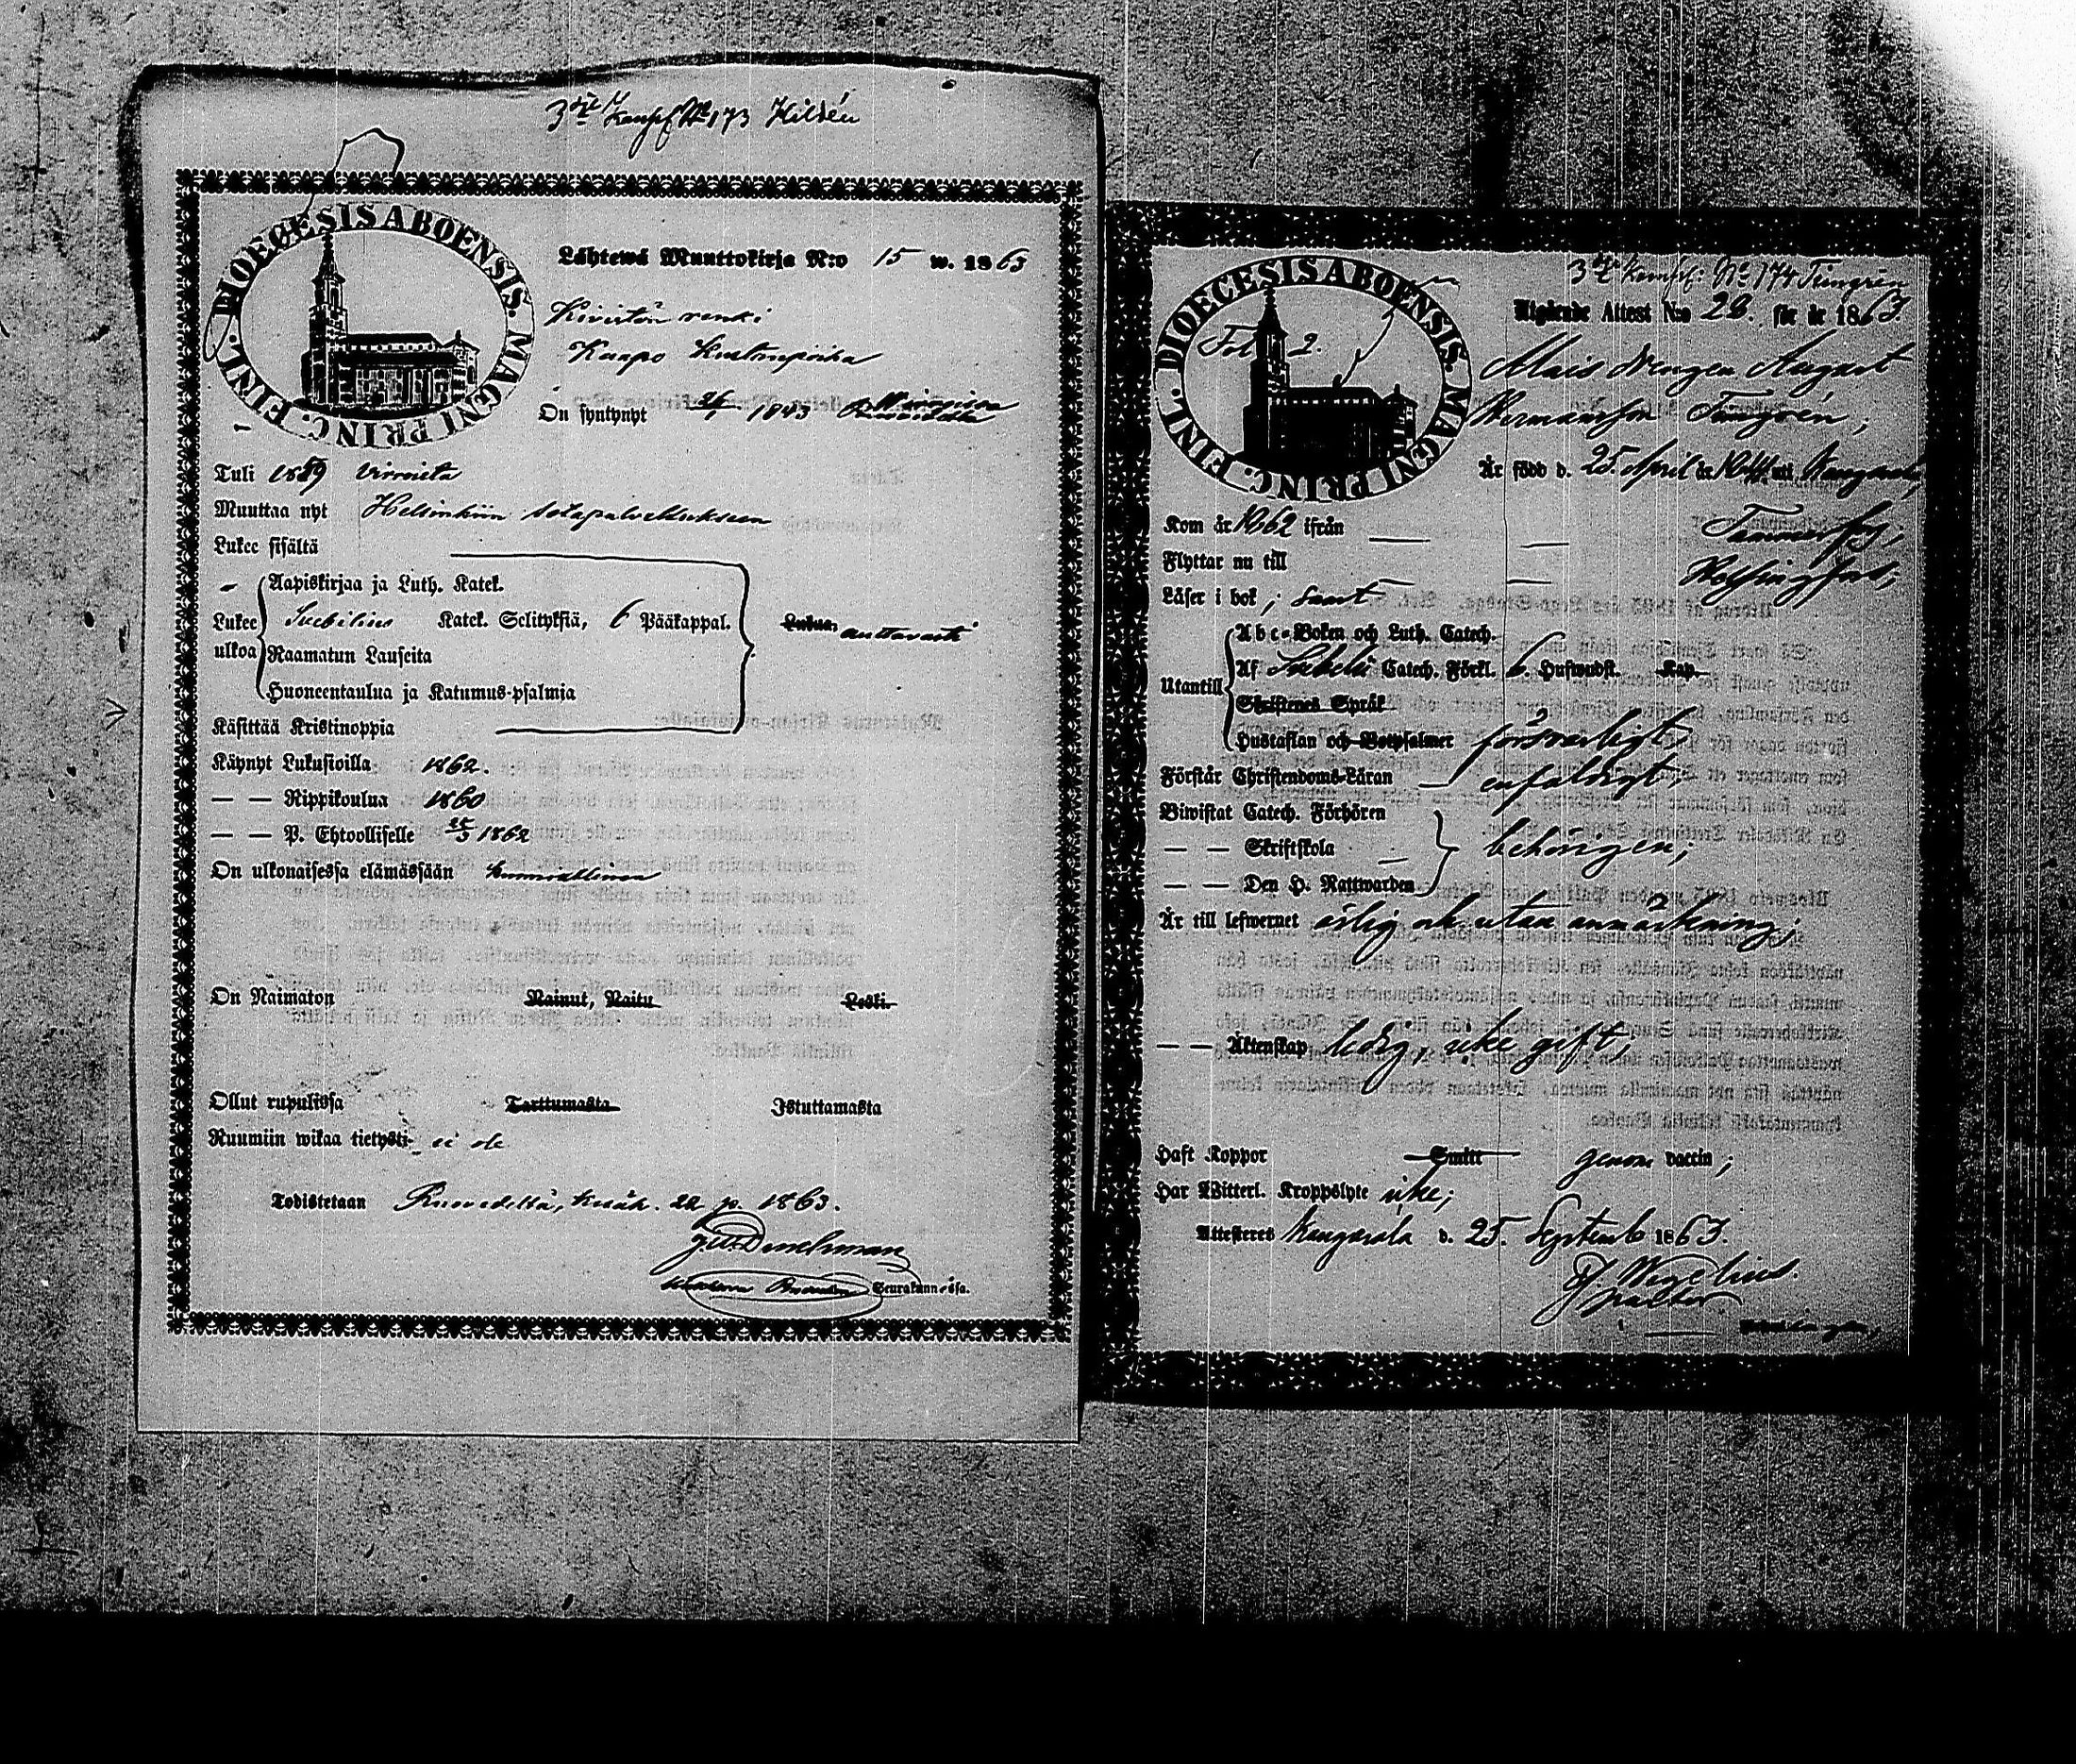 3dje Kompf No 173 Hildén
DIOECESIS ABOENSIS. MAGNI PRINC. FINL.
Lähtewä Muuttokirja N:o 15 w. 1863
renki
Kaapo Kustaapoika
On syntynyt 1843
Tuli 1859 Virroilta
Muuttaa nyt Helsinkiin sotapalvelukseen
Lukee sisältä
Aapiskirjaa ja Luth. Katek.
Lukee Svebilius Katek. Selityksiä, 6 Pääkappal. auttavasti
ulkoa Raamatun Lauseita
Huoneentaulua ja Katumus-psalmia
Käsittää Kristinoppia
Käynyt Lukusioilla 1862.
— — Rippikoulua 1860
— — P. Ehtoollisella 1862
On ulkonaisessa elämässään kunniallinen
On Naimaton Nainut, Naitu Leski.
Ollut rupulissa Tarttumasta Istuttamasta
Ruumiin wikaa tietysti ei ole
Todistetaan Ruovedeltä, kesäk. 22 p. 1863.
Seurakunnassa.
3dje Kompf: No 174 Tungrén
DIOECESIS ABOENSIS. MAGNI PRINC. FINL.
Fol 2.
Utgående Attest N:o 28. för år 1863
Drengen August
Hermansson Tungrén;
Är född d. 25. April år 1844 uti Kangasala,
Kom år 1862 ifrån — — Tammerfors;
Flyttar nu till — Helsingfors;
Läser i bok ; samt
Abc-Boken och Luth. Catech.
Utantill Af Svebelii Catech. Förkl. 6. Hufwudst. Kap.
Skriftenes Språk
Hustaflan och Botpsalmer försvarligt;
Förstår Christendoms-Läran — enfaldigt;
Biwistat Catech. Förhören
— — Skriftskola — behörigen;
— — Den H. Nattwarden
Är till lefwernet ärlig ok utan anmärkning;
— — Äktenskap ledig, icke gift;
Haft Koppor Smitt genom vaccin;
Har Witterl. Kroppslyte icke;
Attesteras Kangasala d. 25. Septemb 1863.
Wegelius.
Pastor